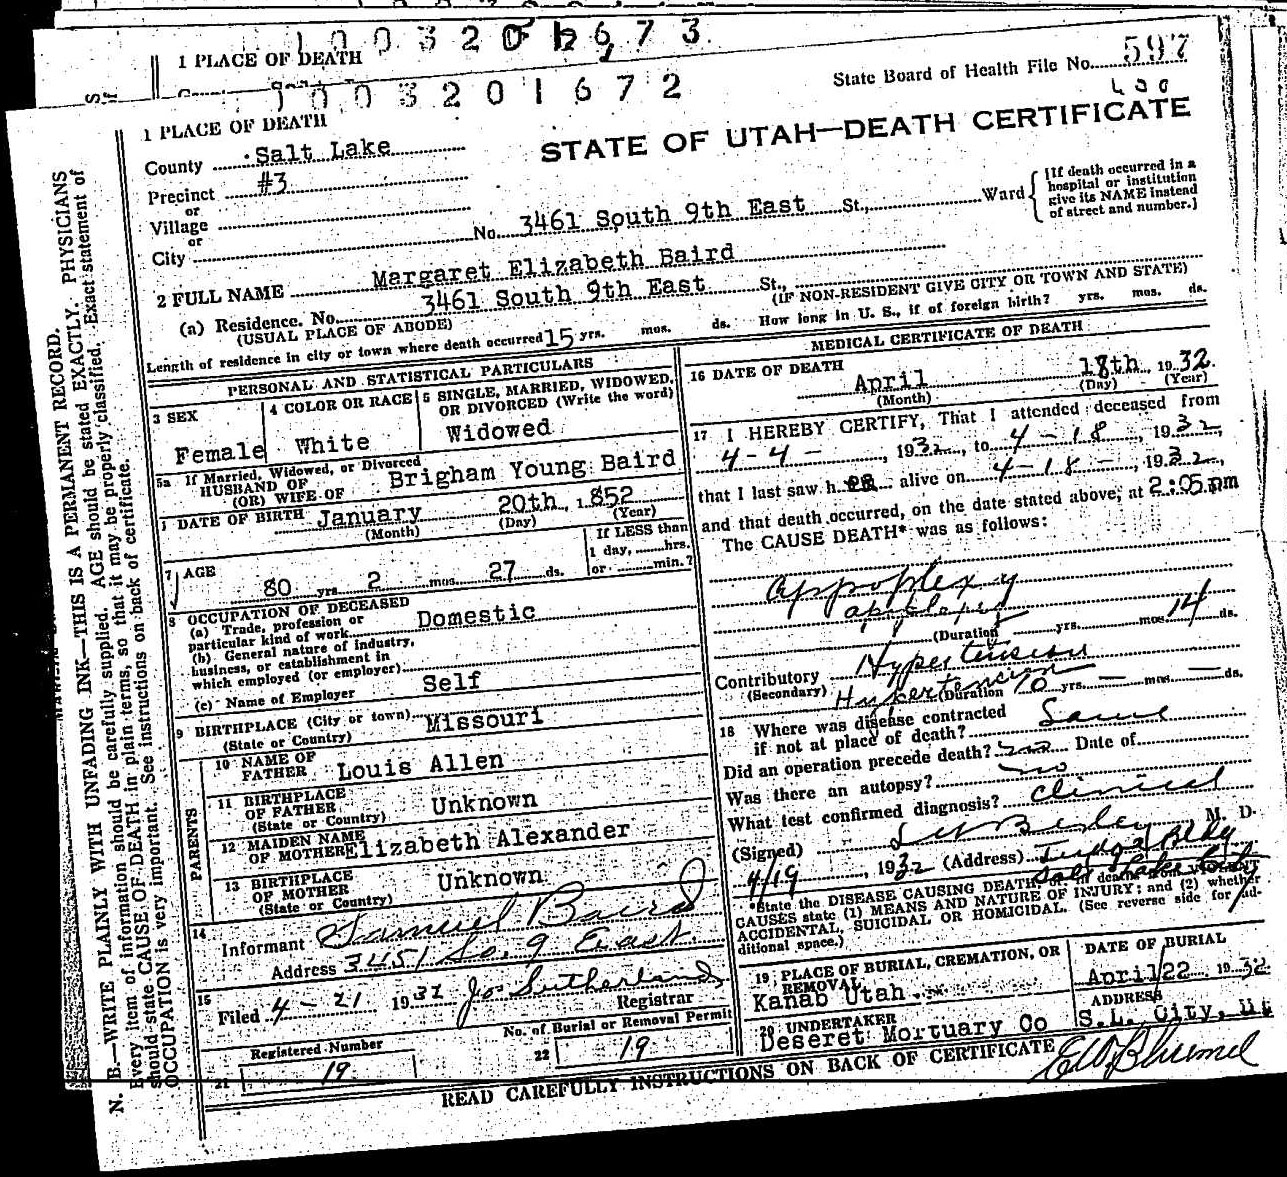 1 0 0 3 2 0 1 6 7 3
1 PLACE OF DEATH
1 0 0 3 2 0 1 6 7 2
State Board of Health File No. 597
1 PLACE OF DEATH
STATE OF UTAH—DEATH CERTIFICATE
County Salt Lake
Precinct #3
or
Village
or
City
No. 3461 South 9th East St., Ward
[If death occurred in a hospital or institution give its NAME instead of street and number.]
2 FULL NAME Margaret Elizabeth Baird
(a) Residence. No. 3461 South 9th East St.,
(USUAL PLACE OF ABODE) (IF NON-RESIDENT GIVE CITY OR TOWN AND STATE)
Length of residence in city or town where death occurred 15 yrs. mos. ds. How long in U. S., if of foreign birth? yrs. mos. ds.
PERSONAL AND STATISTICAL PARTICULARS
3 SEX
Female
4 COLOR OR RACE
White
5 SINGLE, MARRIED, WIDOWED, OR DIVORCED (Write the word)
Widowed
5a If Married, Widowed, or Divorced
HUSBAND OF
(OR) WIFE OF Brigham Young Baird
DATE OF BIRTH January 20th, 1852
(Month) (Day) (Year)
7 AGE
80 yrs 2 mos. 27 ds.
If LESS than
1 day, hrs.
or min.?
8 OCCUPATION OF DECEASED
(a) Trade, profession or
particular kind of work Domestic
(b) General nature of Industry,
business, or establishment in
which employed (or employer)
(c) Name of Employer Self
9 BIRTHPLACE (City or town) Missouri
(State or Country)
PARENTS
10 NAME OF
FATHER Louis Allen
11 BIRTHPLACE
OF FATHER Unknown
(State or Country)
12 MAIDEN NAME
OF MOTHER Elizabeth Alexander
13 BIRTHPLACE
OF MOTHER Unknown
(State or Country)
14
Informant Samuel Baird
Address 3451 So, 9 East
15
Filed 4-21 1932 Jo Sutherland
Registrar
No. of Burial or Removal Permit
22 19
Registered Number
21 19
MEDICAL CERTIFICATE OF DEATH
16 DATE OF DEATH
April 18th, 1932
(Month) (Day) (Year)
17 I HEREBY CERTIFY, That I attended deceased from
4-4-, 1932, to 4-18, 1932,
that I last saw h er alive on 4-18-, 1932,
and that death occurred, on the date stated above, at 2:05 pm
The CAUSE DEATH* was as follows:
Appoplexy
apoplexy
(Duration yrs. mos. 14 ds.
Contributory Hypertension
(Secondary) Hypertension (Duration 10 yrs. — mos. — ds.
18 Where was disease contracted
if not at place of death? Same
Did an operation precede death? no Date of
Was there an autopsy? no
What test confirmed diagnosis? Clinical
(Signed) M. D.
4/19, 1932 (Address) Judge Bldg
Salt Lake City
*State the DISEASE CAUSING DEATH,
CAUSES state (1) MEANS AND NATURE OF INJURY; and (2) whether
ACCIDENTAL, SUICIDAL OR HOMICIDAL. (See reverse side for ad-
ditional space.)
19 PLACE OF BURIAL, CREMATION, OR
REMOVAL
Kanab Utah
DATE OF BURIAL
April 22 1932
20 UNDERTAKER
Deseret Mortuary Co
ADDRESS
S.L. City, Ut
READ CAREFULLY INSTRUCTIONS ON BACK OF CERTIFICATE
N. B.—WRITE PLAINLY WITH UNFADING INK—THIS IS A PERMANENT RECORD.
Every item of information should be carefully supplied. AGE should be stated EXACTLY. PHYSICIANS
should state CAUSE OF DEATH in plain terms, so that it may be properly classified. Exact statement of
OCCUPATION is very important. See instructions on back of certificate.